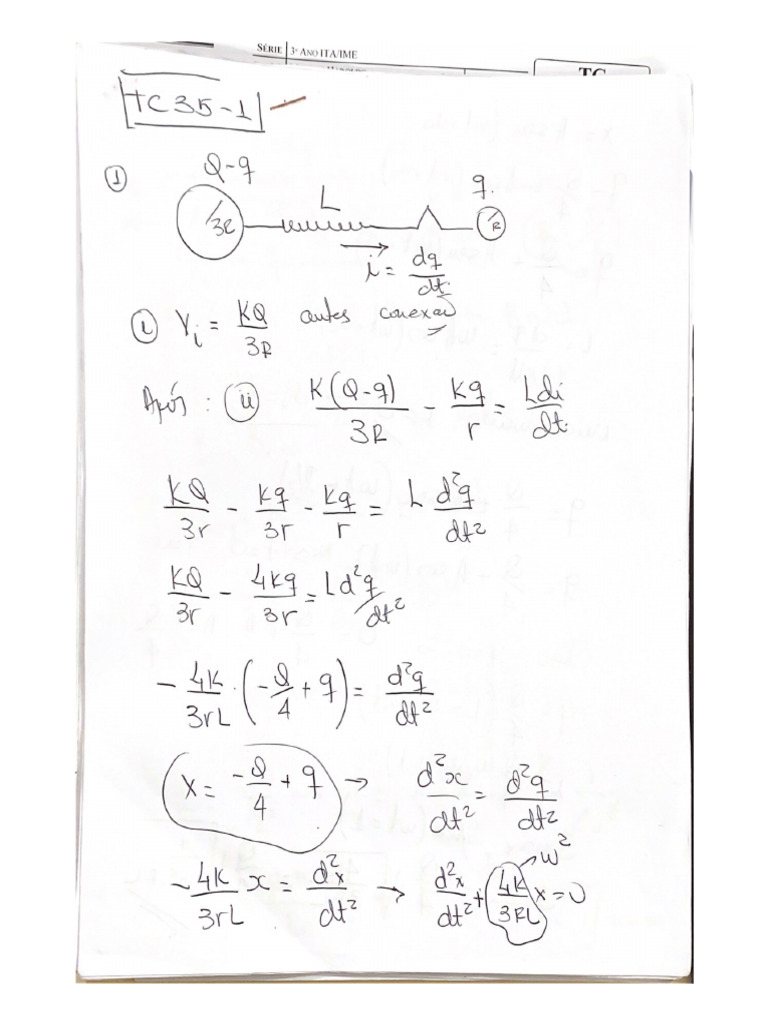 SÉRIE 3º ANO ITA/IME
TC
TC 35-1
① Q-q
L
q.
3R
R
i = dq/dt
ⓘ Vi = KQ/3R antes conexão
Após : ⓘⓘ K(Q-q)/3R - Kq/r = Ldi/dt
KQ/3r - Kq/3r - Kq/r = L d²q/dt²
KQ/3r - 4Kq/3r = Ld²q/dt²
- 4K/3rL · (-Q/4 + q) = d²q/dt²
x = -Q/4 + q → d²x/dt² = d²q/dt²
- 4K/3rL x = d²x/dt² → d²x/dt² + 4K/3RL x = 0
→ w²